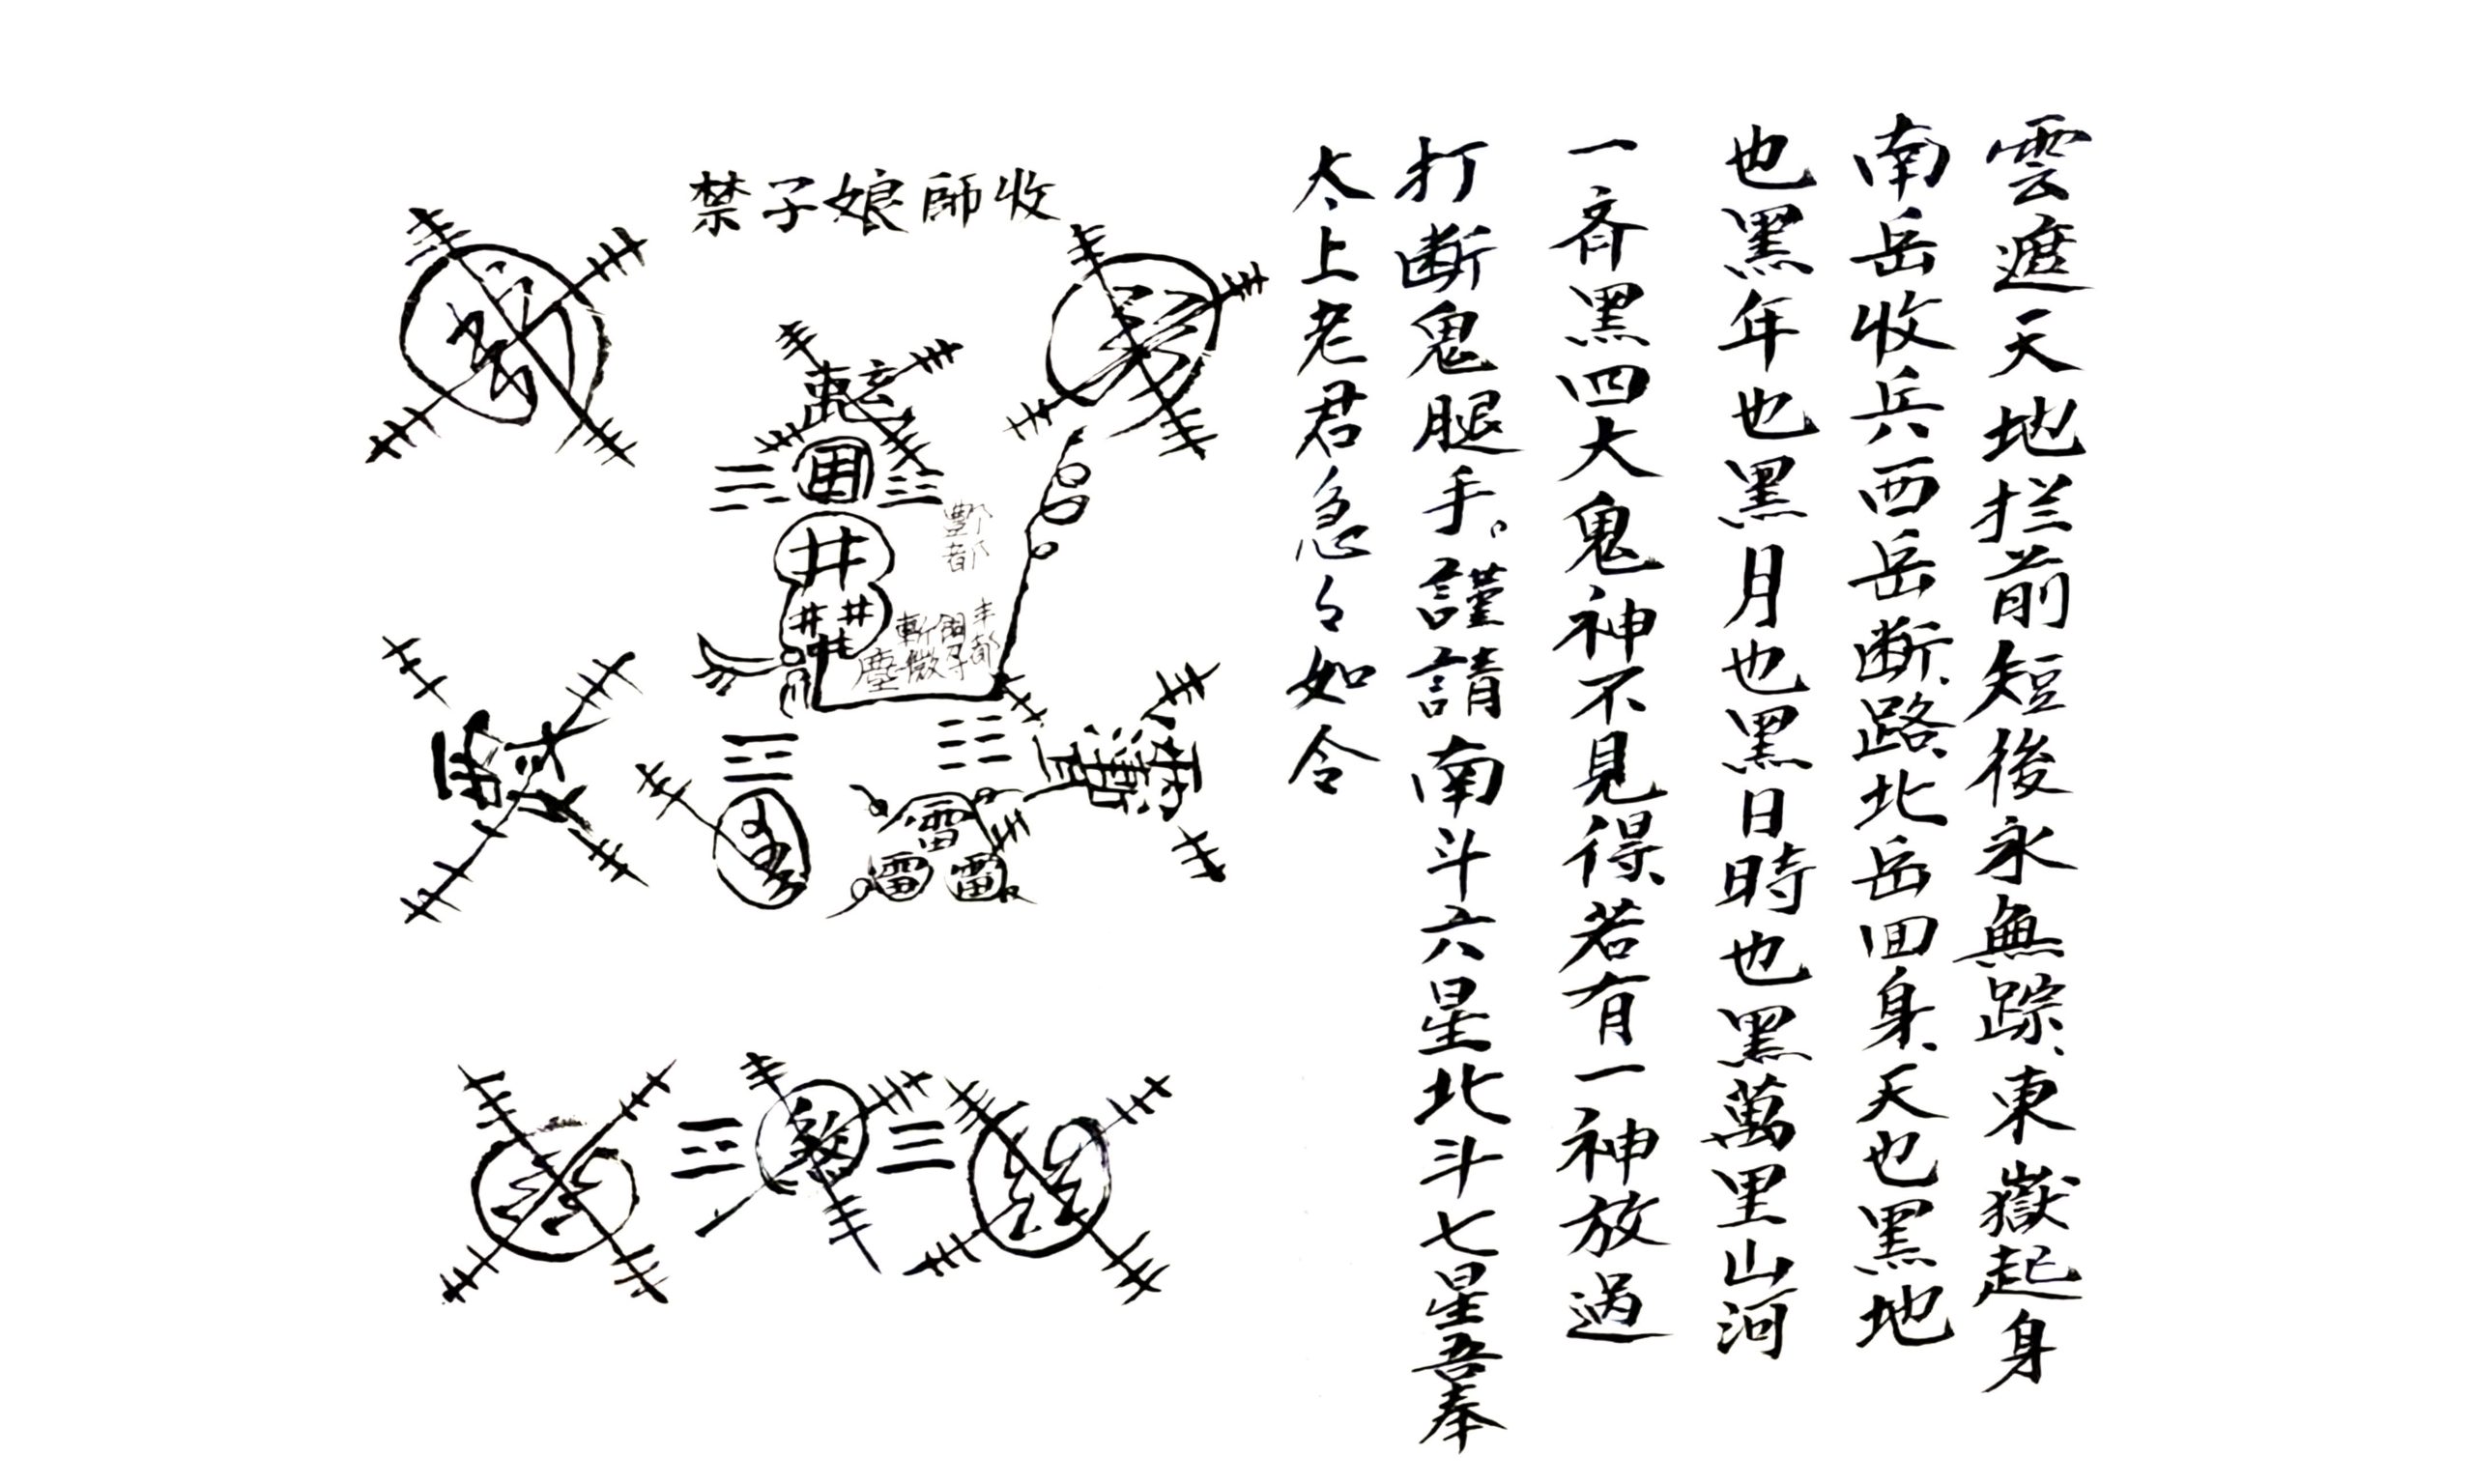 雲遮天地拦前短後永無踪、東嶽起身
南岳收兵西岳断、路、北岳回身、天也黑地
也黑年也黑月也黑日時也黑萬里山河
一斉黒四大鬼神不見得、若有一神放過
打断鬼腿手。謹請南斗六星北斗七星吾奉
太上老君急々如令
收師娘子禁
酆都
丰都
斬
微
塵
井
井井井
雷
雷雷